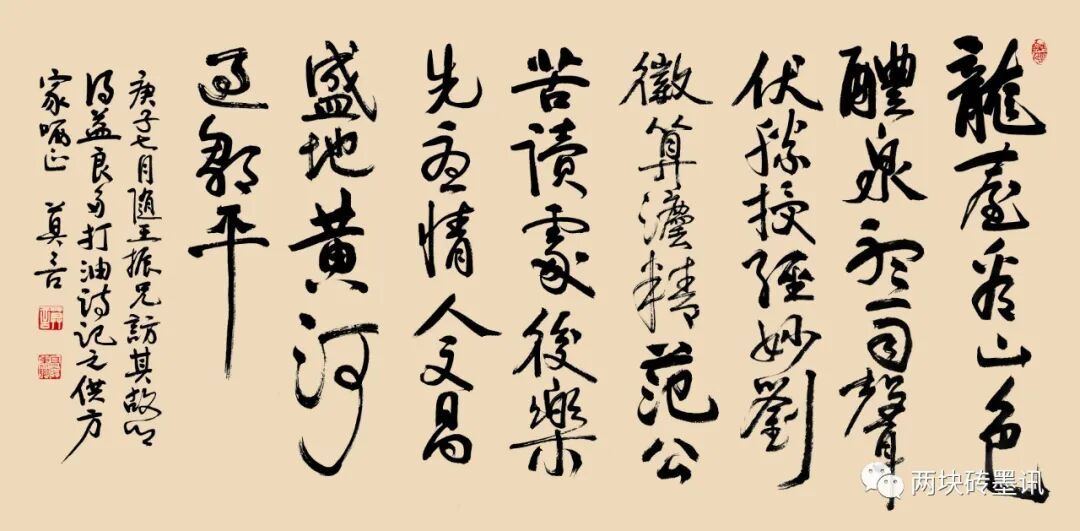 龍臺看山色
醴泉聽雨聲
伏勝授經妙劉
徽算灋精范公
苦讀處後樂
先憂情人文昌
盛地黄河
過鄒平
庚子七月隨王振兄訪其故鄉
得益良多打油詩记之供方
家哂正 莫言
两块砖墨讯